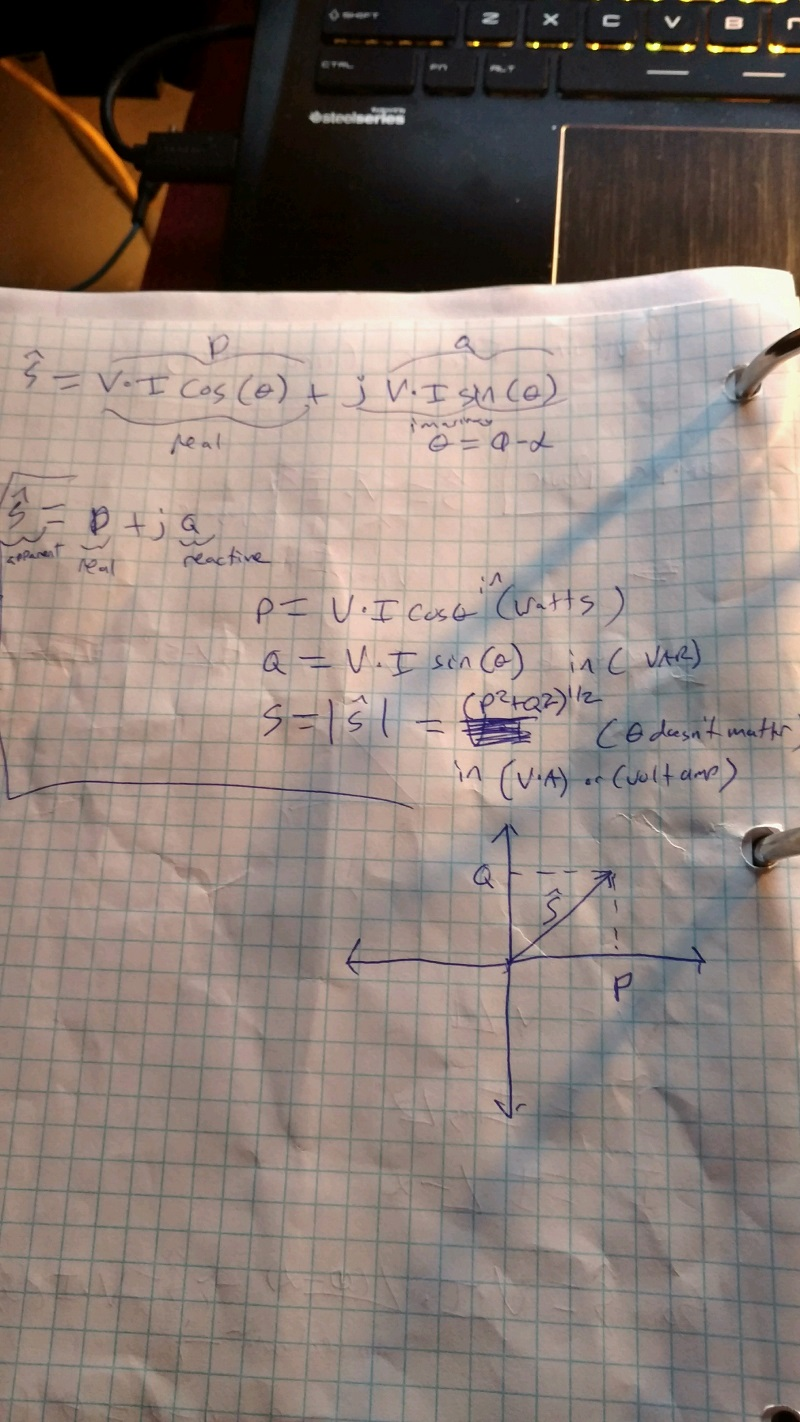 SHIFT Z X C V B N
CTRL FN ALT
steelseries
P Q
Ŝ = V·I cos(θ) + j V·I sin(θ)
real
θ = Φ-α
Ŝ = P + j Q
apparent real reactive
P = V·I cosθ in (Watts)
Q = V·I sin(θ) in (VAR)
S = |Ŝ| = (P²+Q2)^1/2 (θ doesn't matter)
in (V·A) or (volt amp)
Q
Ŝ
P